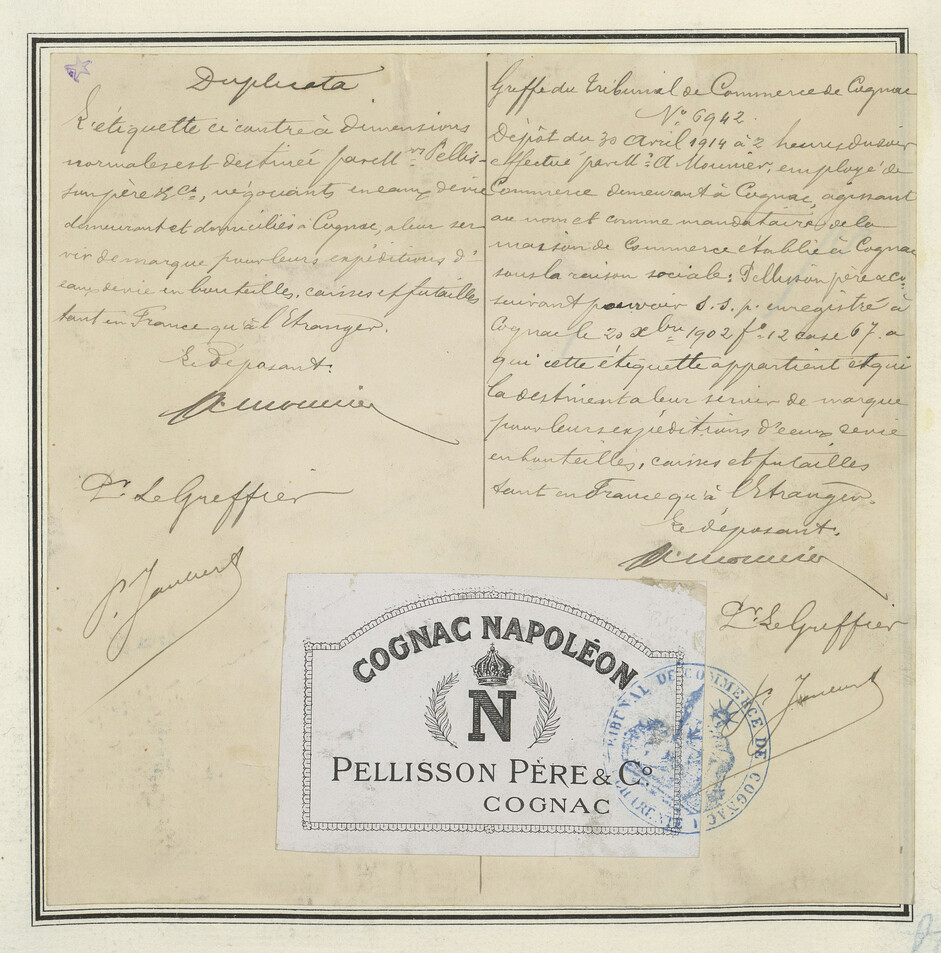 Duplicata
L'étiquette ci contre à dimensions
normales est destinée par MMrs Pellis-
son père & Co, négociants en eaux de vie
demeurant et domiciliés à Cognac, a leur ser-
vir de marque pour leurs expéditions d'
eaux de vie en bouteilles, caisses et futailles
tant en France qu'à l'Etranger.
Le déposant.
A. Mounier
Pr Le Greffier
Greffe du Tribunal de Commerce de Cognac
No 6942.
Dépôt du 30 Avril 1914 à 2 heures du soir
effectué par Mr A Mounier, employé de
Commerce demeurant à Cognac, agissant
au nom et comme mandataire de la
maison de Commerce établie à Cognac
sous la raison sociale: Pellisson père & Co
suivant pouvoir s.s.p. enregistré à
Cognac le 20 Xbre 1902 fo 12 case 67. a
qui cette étiquette appartient et qui
la destinent a leur servir de marque
pour leurs expéditions d'eaux de vie
en bouteilles, caisses et futailles
tant en France qu'à l'Etranger.
Le déposant.
A. Mounier
Pr Le Greffier
COGNAC NAPOLÉON
N
PELLISSON PÈRE & Co
COGNAC
TRIBUNAL DE COMMERCE DE COGNAC
CHARENTE